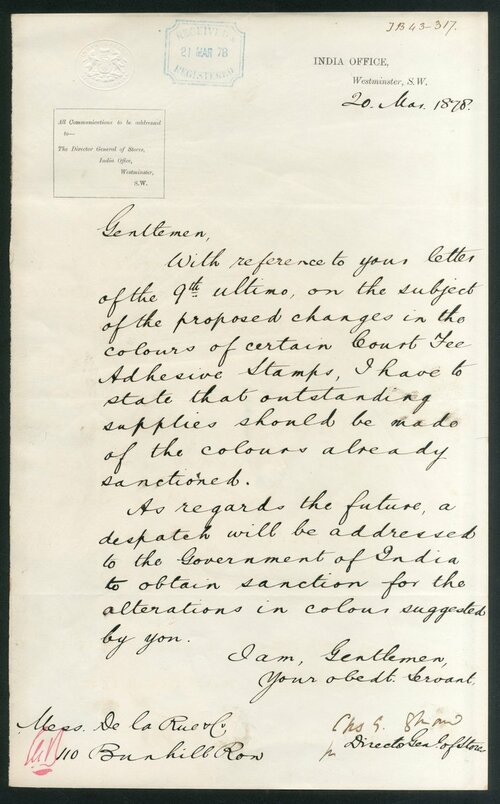 JB43-317.
RECEIVED &
21 MAR 78
REGISTERED
INDIA OFFICE,
Westminster, S.W.
20. Mar. 1878.
All Communications to be addressed
to—
The Director General of Stores,
India Office,
Westminster,
S.W.
Gentlemen,
With reference to your letter
of the 9th ultimo, on the subject
of the proposed changes in the
colours of certain Court Fee
Adhesive Stamps, I have to
state that outstanding
supplies should be made
of the colours already
sanctioned.
As regards the future, a
despatch will be addressed
to the Government of India
to obtain sanction for the
alterations in colour suggested
by you.
I am, Gentlemen,
Your obedt. Servant.
Mess. De la Rue & Co
110 Bunhill Row
Director Genl. of Stores